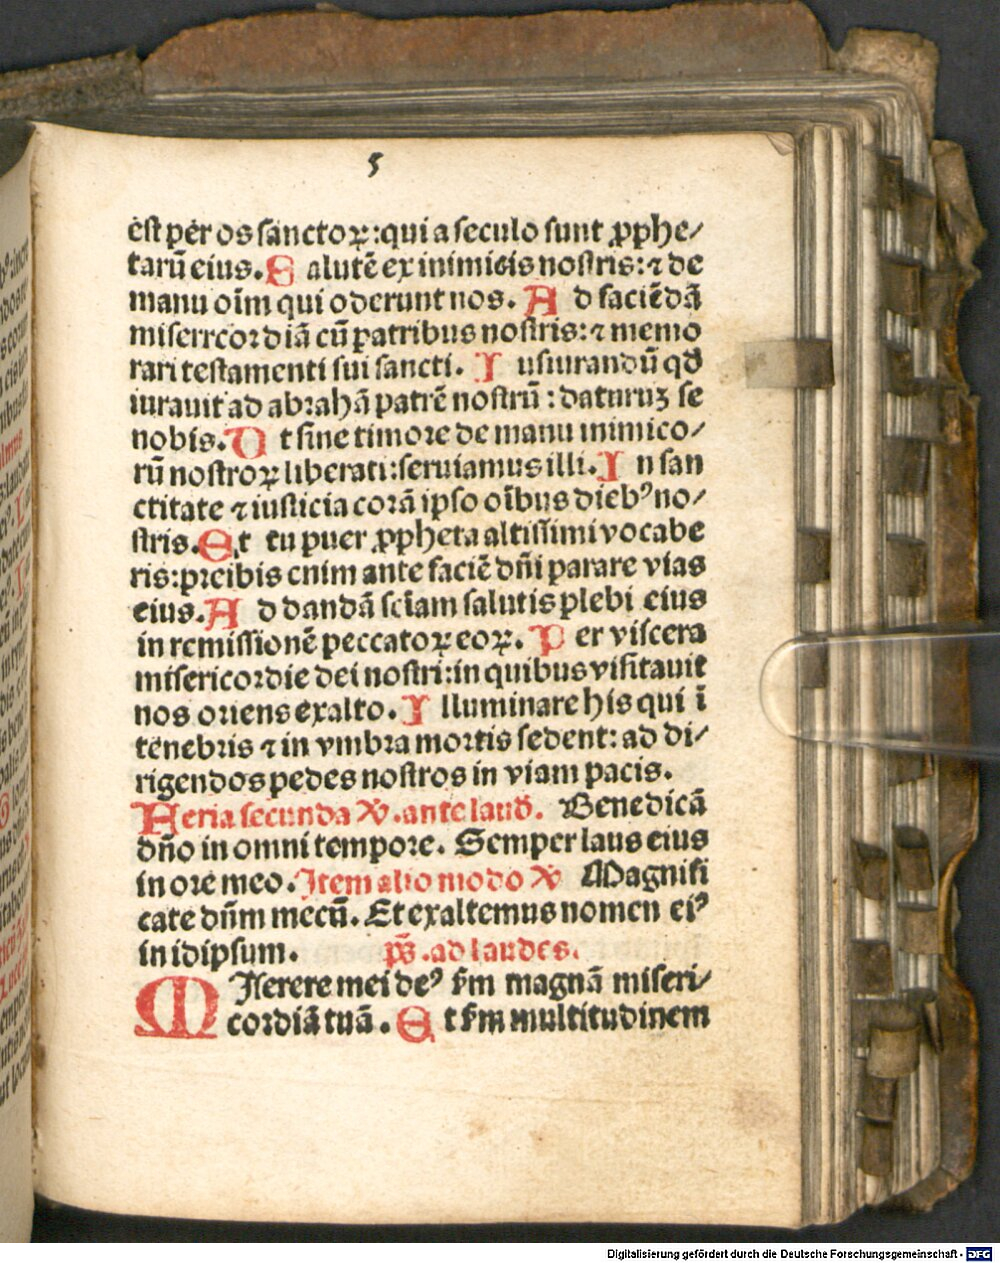 5
est per os sanctoꝝ: qui a seculo sunt ꝓphe⸗
tarū eius. S alutē ex inimicis nostris: ⁊ de
manu oīm qui oderunt nos. A d faciēdā
miserrcordiā cū patribus nostris: ⁊ memo
rari testamenti sui sancti. I usiurandū qđ
iurauit ad abrahā patrē nostrū: daturuꝫ se
nobis. U t sine timore de manu inimico⸗
rū nostroꝝ liberati: seruiamus illi. I n san
ctitate ⁊ iusticia corā ipso oībus diebꝰ no⸗
stris. Et tu puer ꝓpheta altissimi vocabe
ris: preibis enim ante faciē dn̄i parare vias
eius. A d dandā sciam salutis plebi eius
in remissionē peccatoꝝ eoꝝ. P er viscera
misericordie dei nostri: in quibus visitauit
nos oriens exalto. I lluminare his qui ī
tenebris ⁊ in vmbra mortis sedent: ad di⸗
rigendos pedes nostros in viam pacis.
Feria secunda ℣. ante laud. Benedicā
dn̄o in omni tempore. Semper laus eius
in ore meo. Item alio modo ℣ Magnifi
cate dn̄m mecū. Et exaltemus nomen eiꝰ
in idipsum. p̄s. ad laudes.
MIserere mei deꝰ sm̄ magnā miseri⸗
cordiā tuā. E t sm̄ multitudinem
Digitalisierung gefördert durch die Deutsche Forschungsgemeinschaft - DFG